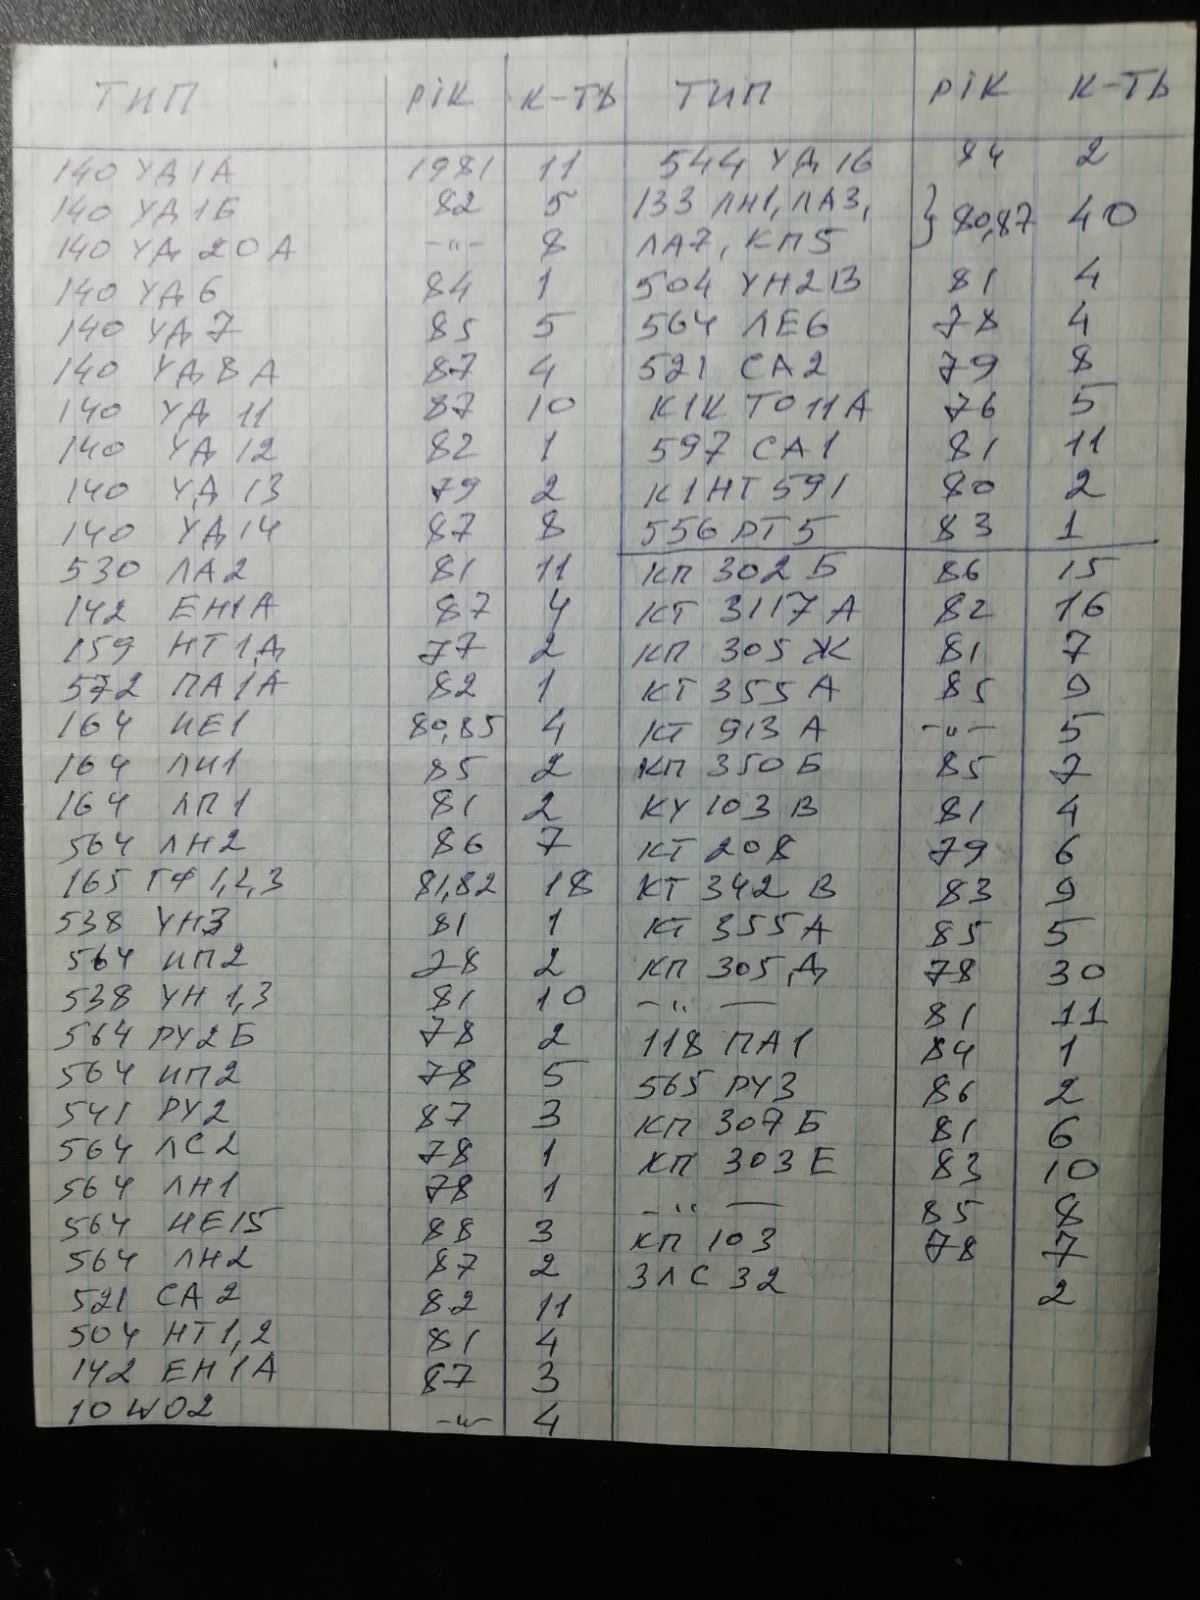 ТИП РІК К-ТЬ
140 УД1А 1981 11
140 УД1Б 82 5
140 УД 20А -"- 8
140 УД6 84 1
140 УД7 85 5
140 УД8А 87 4
140 УД 11 87 10
140 УД 12 82 1
140 УД 13 79 2
140 УД14 87 8
530 ЛА2 81 11
142 ЕН1А 87 4
159 НТ1Д 77 2
572 ПА1А 82 1
164 ИЕ1 80,85 4
164 ЛИ1 85 2
164 ЛП1 81 2
564 ЛН2 86 7
165 ГФ1,2,3 81,82 18
538 УН3 81 1
564 ИП2 78 2
538 УН1,3 81 10
564 РУ2Б 78 2
564 ИП2 78 5
541 РУ2 87 3
564 ЛС2 78 1
564 ЛН1 78 1
564 ИЕ15 88 3
564 ЛН2 87 2
521 СА2 82 11
504 НТ1,2 81 4
142 ЕН1А 87 3
10 WO2 -"- 4
ТИП РІК К-ТЬ
544 УД 1б 84 2
133 ЛН1, ЛА3,
ЛА7, КП5 } 80,87 40
504 УН2В 81 4
564 ЛЕ6 78 4
521 СА2 79 8
К1К Т011А 76 5
597 СА1 81 11
К1НТ591 80 2
556 РТ5 83 1
КП 302Б 86 15
КТ 3117А 82 16
КП 305Ж 81 7
КТ 355А 85 9
КТ 913 А -"- 5
КП 350Б 85 7
КУ 103 В 81 4
КТ 208 79 6
КТ 342 В 83 9
КТ 355А 85 5
КП 305Д 78 30
-"- 81 11
118 ПА1 84 1
565 РУ3 86 2
КП 307Б 81 6
КП 303Е 83 10
-"- 85 8
КП 103 78 7
3ЛС 32 2